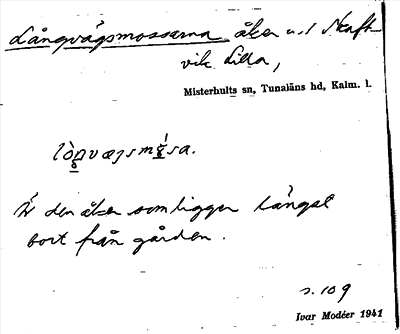 Långvägsmossarna åker u. l Skaft-
vik Lilla,
Misterhults sn, Tunaläns hd, Kalm. l.
Är den åker som ligger längst
bort från gården.
s. 109
Ivar Modéer 1941